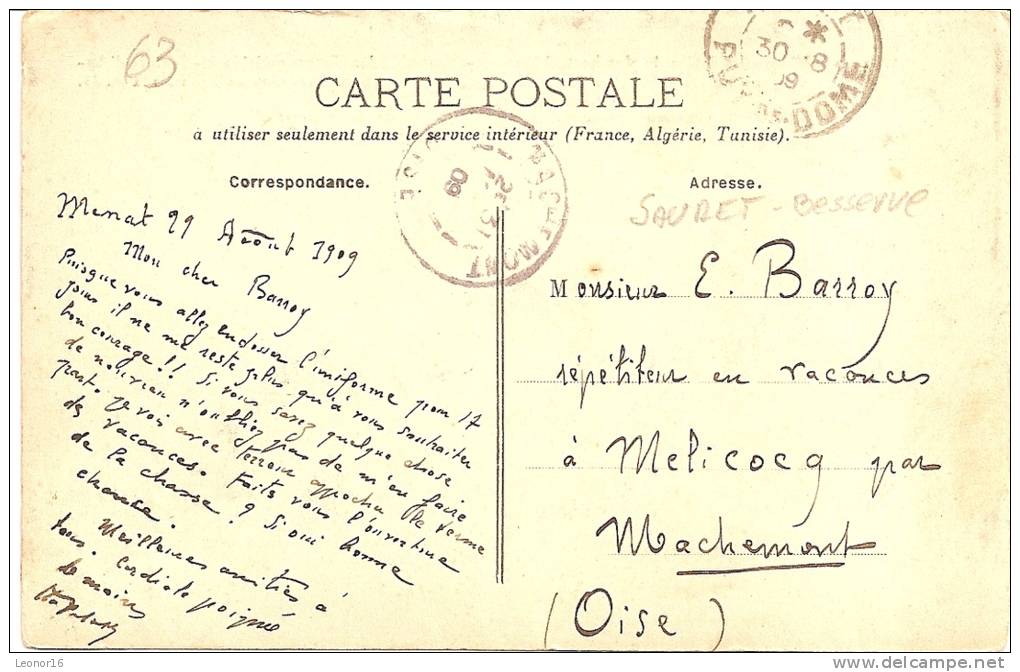 63
* 30 - 8 09 PUY-DE-DOME
CARTE POSTALE
à utiliser seulement dans le service intérieur (France, Algérie, Tunisie).
MACHEMONT OISE 31 09
Correspondance.
Menat 29 Août 1909
Mon cher Barroy
Puisque vous allez endosser l'uniforme pour 17
jours il ne me reste plus qu'à vous souhaiter
bon courage!! Si vous savez quelque chose
de nouveau n'oubliez pas de m'en faire
part. Je vois avec terreur approcher le terme
des vacances. Faits vous l'ouverture
de la chasse? Si oui bonne
chance.
Meilleures amitiés à
tous. Cordiale poignée
de mains
Adresse.
SAURET-Besserve
Monsieur E. Barroy
répétiteur en vacances
à Mélicocq par
Machemont
(Oise)
Leonor16
www.delcampe.net